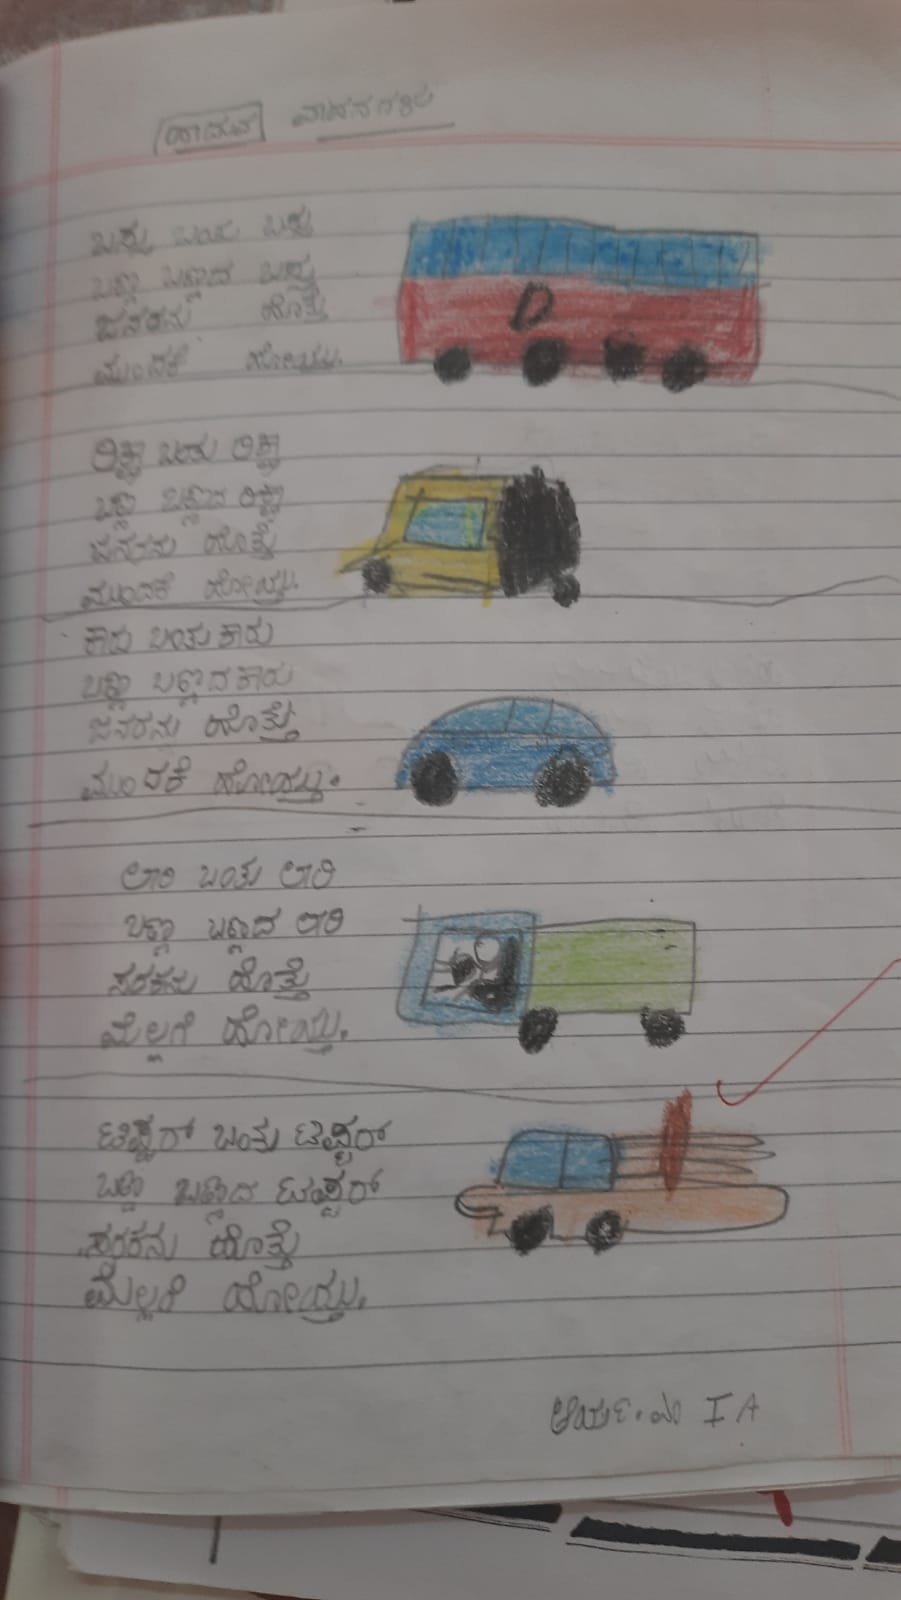 ವಾಹನಗಳು
ಬಸ್ಸು ಬಂತು ಬಸ್ಸು
ಬಣ್ಣಾ ಬಣ್ಣಾದ ಬಸ್ಸು
ಜನರನು ಹೊತ್ತು
ಮುಂದಕೆ ಹೋಯ್ತು.
ರಿಕ್ಷಾ ಬಂತು ರಿಕ್ಷಾ
ಬಣ್ಣಾ ಬಣ್ಣಾದ ರಿಕ್ಷಾ
ಜನರನು ಹೊತ್ತು
ಮುಂದಕೆ ಹೋಯ್ತು.
ಕಾರು ಬಂತು ಕಾರು
ಬಣ್ಣಾ ಬಣ್ಣಾದ ಕಾರು
ಜನರನು ಹೊತ್ತು
ಮುಂದಕೆ ಹೋಯ್ತು.
ಲಾರಿ ಬಂತು ಲಾರಿ
ಬಣ್ಣಾ ಬಣ್ಣಾದ ಲಾರಿ
ಸರಕನು ಹೊತ್ತು
ಮೆಲ್ಲಗೆ ಹೋಯ್ತು.
ಟಿಪ್ಪರ್ ಬಂತು ಟಿಪ್ಪರ್
ಬಣ್ಣಾ ಬಣ್ಣಾದ ಟಿಪ್ಪರ್
ಸರಕನು ಹೊತ್ತು
ಮೆಲ್ಲಗೆ ಹೋಯ್ತು.
D
I A